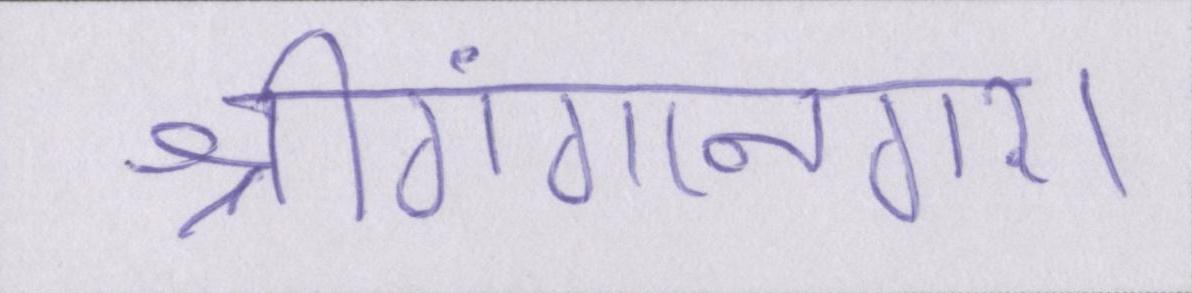 श्रीगंगानगर।